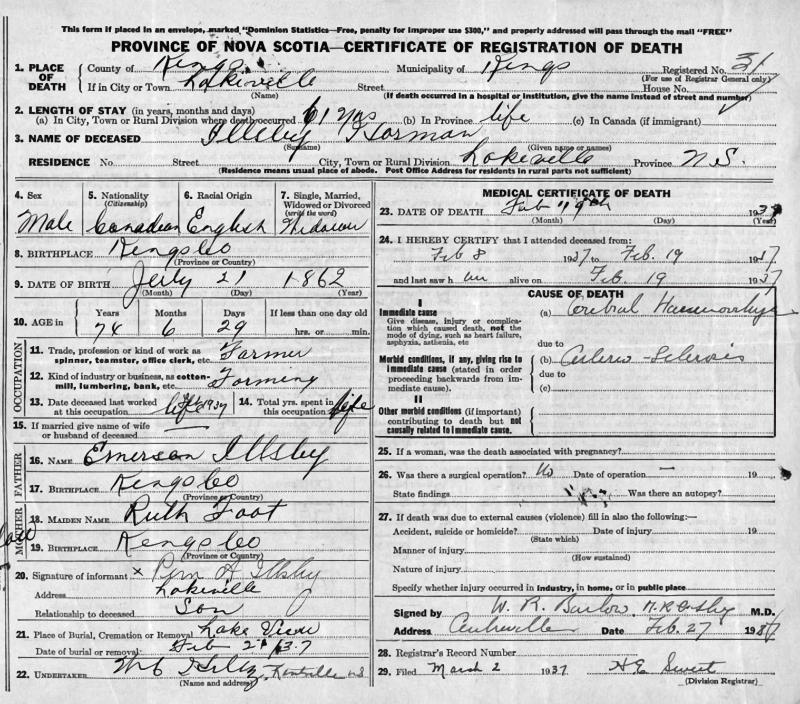 This form if placed in an envelope, marked "Dominion Statistics—Free, penalty for improper use $300," and properly addressed will pass through the mail "FREE"
PROVINCE OF NOVA SCOTIA—CERTIFICATE OF REGISTRATION OF DEATH
1. PLACE OF DEATH County of Kings Municipality of Kings Registered No. 31
(For use of Registrar General only)
If in City or Town Lakeville Street House No.
(Name) (If death occurred in a hospital or institution, give the name instead of street and number)
2. LENGTH OF STAY (in years, months and days)
(a) In City, Town or Rural Division where death occurred 61 yrs (b) In Province life (c) In Canada (if immigrant)
3. NAME OF DECEASED Illsley Harman
(Surname) (Given name or names)
RESIDENCE No. Street City, Town or Rural Division Lakeville Province N.S.
(Residence means usual place of abode. Post Office Address for residents in rural parts not sufficient)
4. Sex Male
5. Nationality (Citizenship) Canadian
6. Racial Origin English
7. Single, Married, Widowed or Divorced (write the word) Widower
8. BIRTHPLACE Kings Co
(Province or Country)
9. DATE OF BIRTH July 21 1862
(Month) (Day) (Year)
10. AGE in Years Months Days If less than one day old
74 6 29 hrs. or min.
OCCUPATION
11. Trade, profession or kind of work as spinner, teamster, office clerk, etc. Farmer
12. Kind of industry or business, as cotton-mill, lumbering, bank, etc. Farming
13. Date deceased last worked at this occupation 1937
14. Total yrs. spent in this occupation life
15. If married give name of wife or husband of deceased —
FATHER
16. NAME Emerson Illsley
17. BIRTHPLACE Kings Co
(Province or Country)
MOTHER
18. MAIDEN NAME Ruth Foot
19. BIRTHPLACE Kings Co
(Province or Country)
20. Signature of informant x A Illsley
Address Lakeville
Relationship to deceased Son
21. Place of Burial, Cremation or Removal Lake View
Date of burial or removal Feb 21 37
22. UNDERTAKER Kentville N S
(Name and address)
MEDICAL CERTIFICATE OF DEATH
23. DATE OF DEATH Feb 19th 1937
(Month) (Day) (Year)
24. I HEREBY CERTIFY that I attended deceased from:
Feb 8 1937 to Feb. 19 1937
and last saw h im alive on Feb. 19 1937
CAUSE OF DEATH
I
Immediate cause
Give disease, injury or complication which caused death, not the mode of dying, such as heart failure, asphyxia, asthenia, etc
(a) Cerebral Haemorrhage
due to
Morbid conditions, if any, giving rise to immediate cause (stated in order proceeding backwards from immediate cause).
(b) Arterio-Sclerosis
due to
(c)
II
Other morbid conditions (if important) contributing to death but not causally related to immediate cause.
25. If a woman, was the death associated with pregnancy?
26. Was there a surgical operation? No Date of operation — 19
State findings Was there an autopsy?
27. If death was due to external causes (violence) fill in also the following:—
Accident, suicide or homicide? Date of injury 19
(State which)
Manner of injury
(How sustained)
Nature of injury
Specify whether injury occurred in industry, in home, or in public place
Signed by W. R. Barlow M.D.
Address Centreville Date Feb. 27 1937
28. Registrar's Record Number
29. Filed March 2 1937 H E Sweet
(Division Registrar)